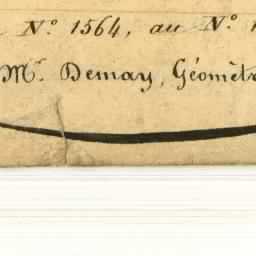 N.º 1564, au N.º
M.r Demay, Géomèt